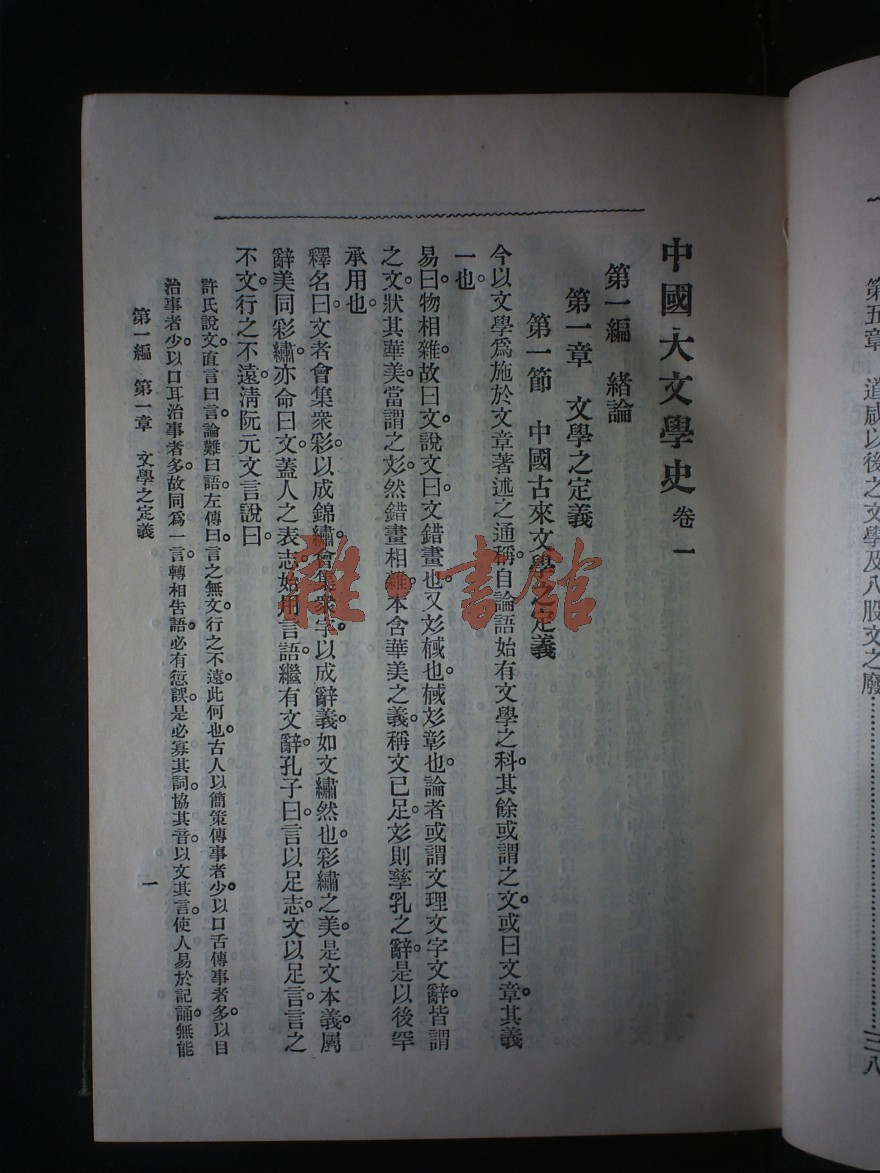 第五章　道咸以後之文學及八股文之廢……………………三二八
中國大文學史 卷一
第一編　緒論
第一章　文學之定義
第一節　中國古來文學之定義
今以文學爲施於文章著述之通稱。自論語始有文學之科。其餘或謂之文。或曰文章。其義
一也。
易曰。物相雜。故曰文。說文曰。文錯畫也。又彣𢒈也。𢒈彣彰也。論者或謂文理文字文辭。皆謂
之文。狀其華美。當謂之彣。然錯畫相雜。本含華美之義。稱文已足。彣則孳乳之辭。是以後罕
承用也。
釋名曰。文者會集衆彩以成錦繡。會集衆字以成辭義。如文繡然也。彩繡之美。是文本義。屬
辭美同彩繡。亦命曰文。蓋人之表志。始用言語。繼有文辭。孔子曰。言以足志。文以足言。言之
不文。行之不遠。淸阮元文言說曰。
許氏說文。直言曰言。論難曰語。左傳曰。言之無文。行之不遠。此何也。古人以簡策傳事者少。以口舌傳事者多。以目
治事者少。以口耳治事者多。故同爲一言。轉相告語。必有愆誤。是必寡其詞。協其音。以文其言。使人易於記誦。無能
第一編　第一章　文學之定義
一
雜·書館